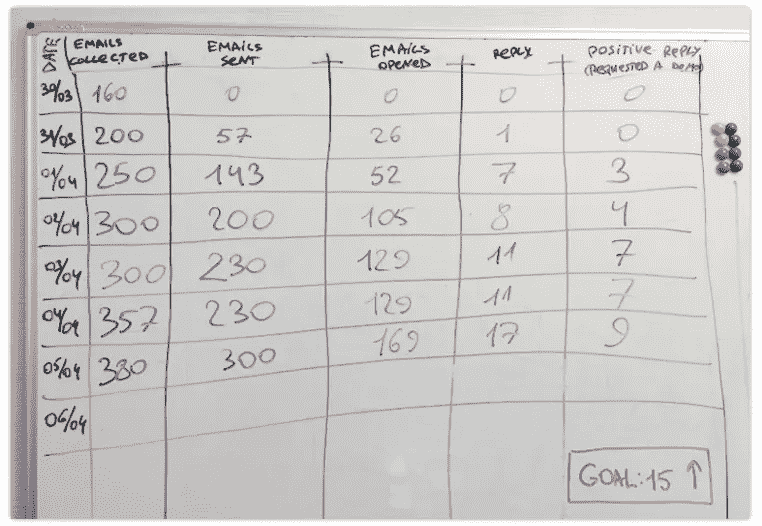 DATE EMAILS COLLECTED EMAILS SENT EMAILS OPENED REPLY POSITIVE REPLY (REQUESTED A DEMO)
30/03 160 0 0 0 0
31/03 200 57 26 1 0
01/04 250 143 52 7 3
02/04 300 200 105 8 4
03/04 300 230 129 11 7
04/04 357 230 129 11 7
05/04 380 300 169 17 9
06/04
GOAL: 15 ↑